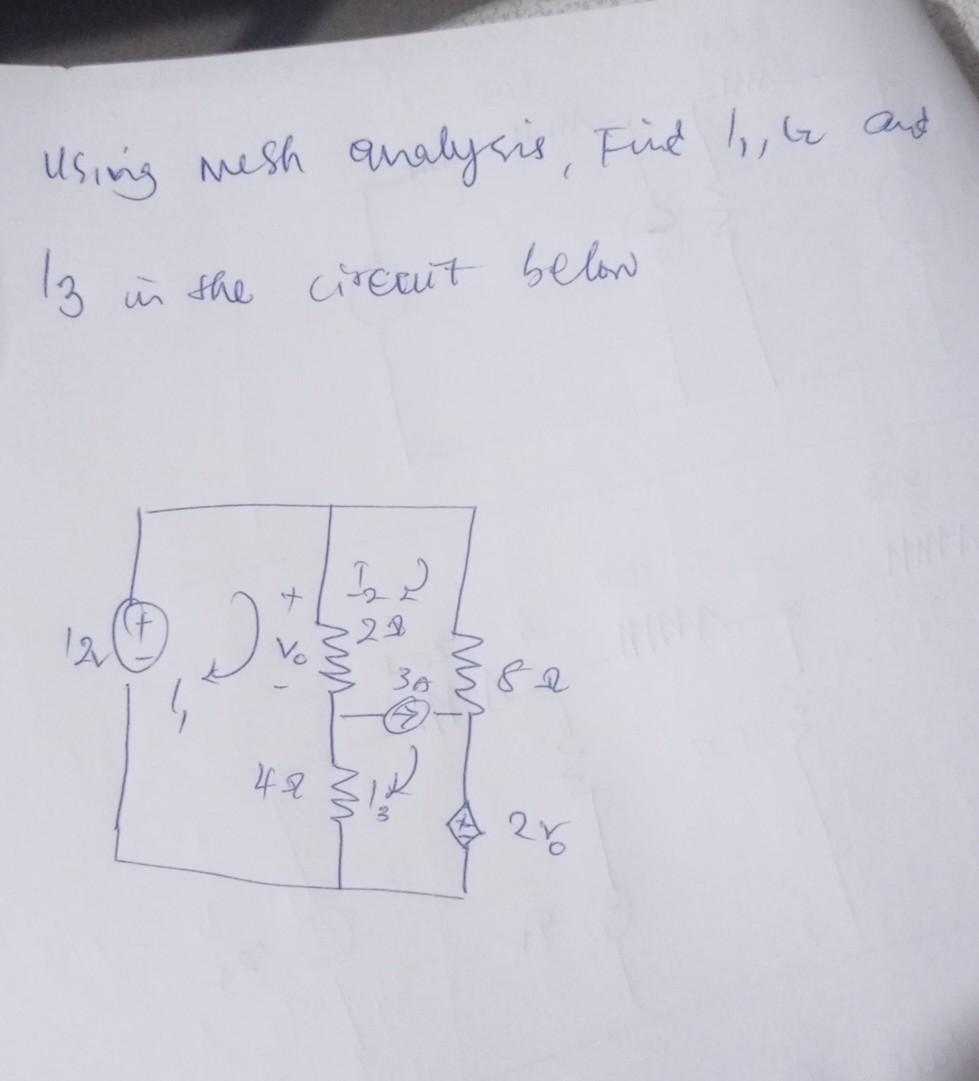 Using mesh analysis, Find I1, I2 and
I3 in the circuit below
I2
+
2Ω
12v
+
-
Vo
-
3A
8Ω
I1
4Ω
I3
+
-
2Vo